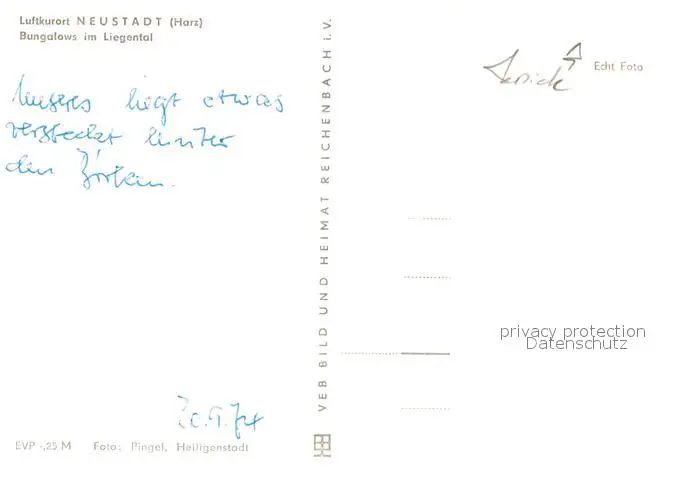 Luftkurort NEUSTADT (Harz)
Bungalows im Liegental
Unseres liegt etwas
versteckt hinter
den Birken.
EVP -,25 M Foto: Pingel, Heiligenstadt
VEB BILD UND HEIMAT REICHENBACH i.V.
Echt Foto
privacy protection
Datenschutz